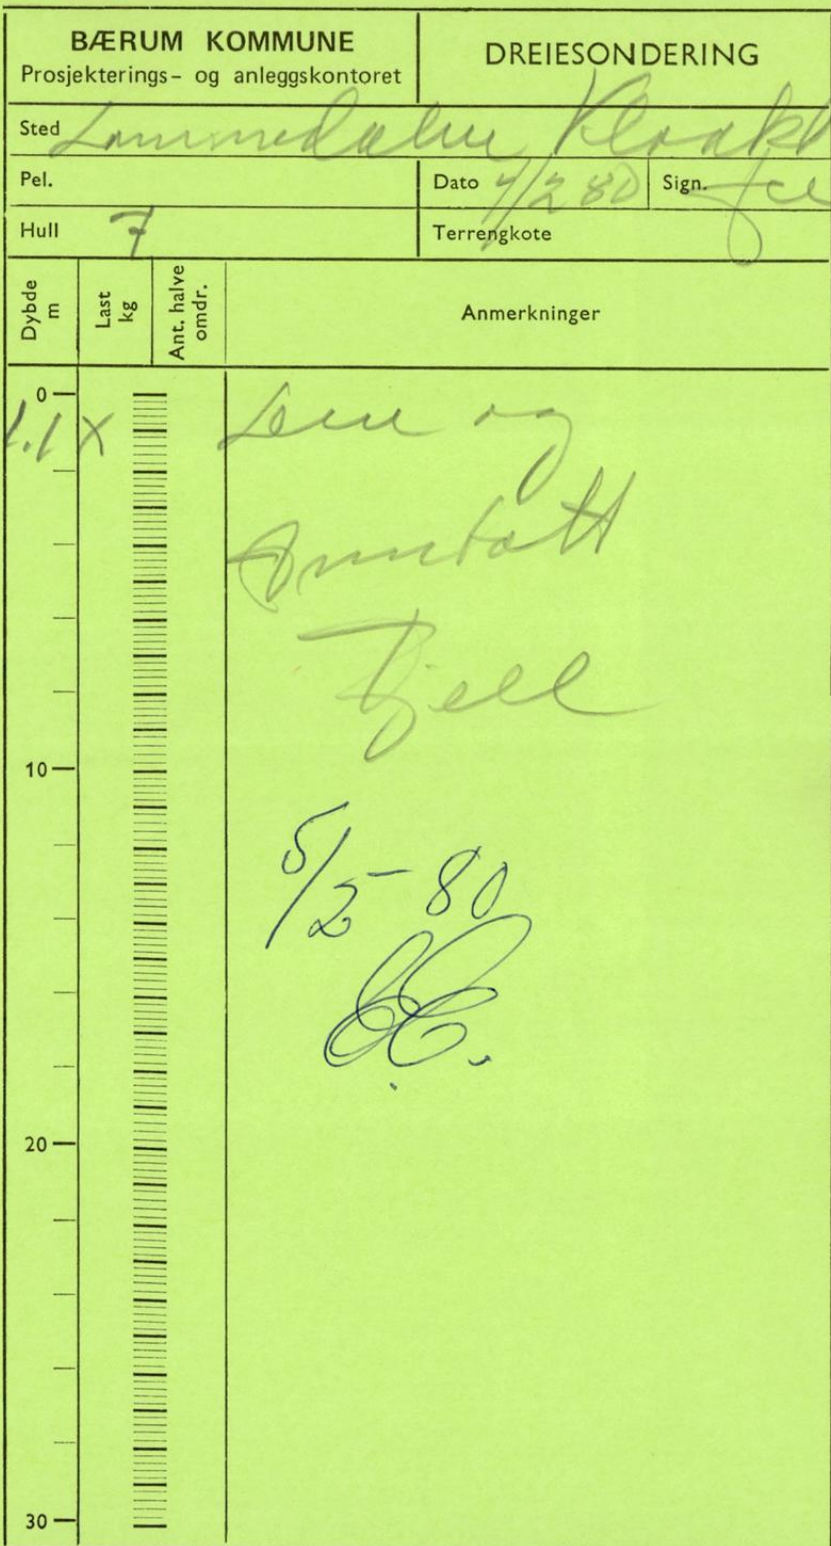 BÆRUM KOMMUNE
Prosjekterings- og anleggskontoret
DREIESONDERING
Sted Lommedalen Kloakk
Pel.
Dato 4/2 80
Sign.
Hull 7
Terrengkote
Dybde m
Last kg
Ant. halve omdr.
Anmerkninger
0
1.1 X
Leire og
Antatt
Fjell
10
5/2-80
20
30